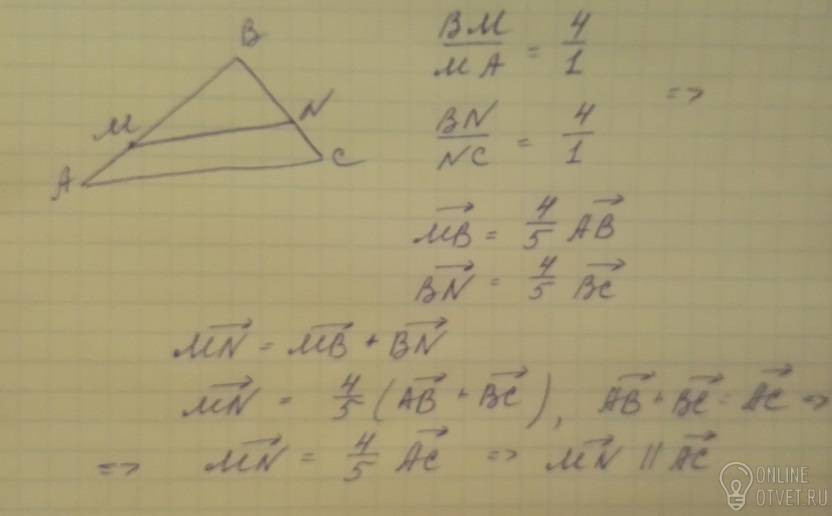 B
M
N
A
C
BM/MA = 4/1
=>
BN/NC = 4/1
MB→ = 4/5 AB→
BN→ = 4/5 BC→
MN→ = MB→ + BN→
MN→ = 4/5 (AB→ + BC→), AB→ + BC→ = AC→ =>
=> MN→ = 4/5 AC→ => MN→ || AC→
ONLINE
OTVET.RU